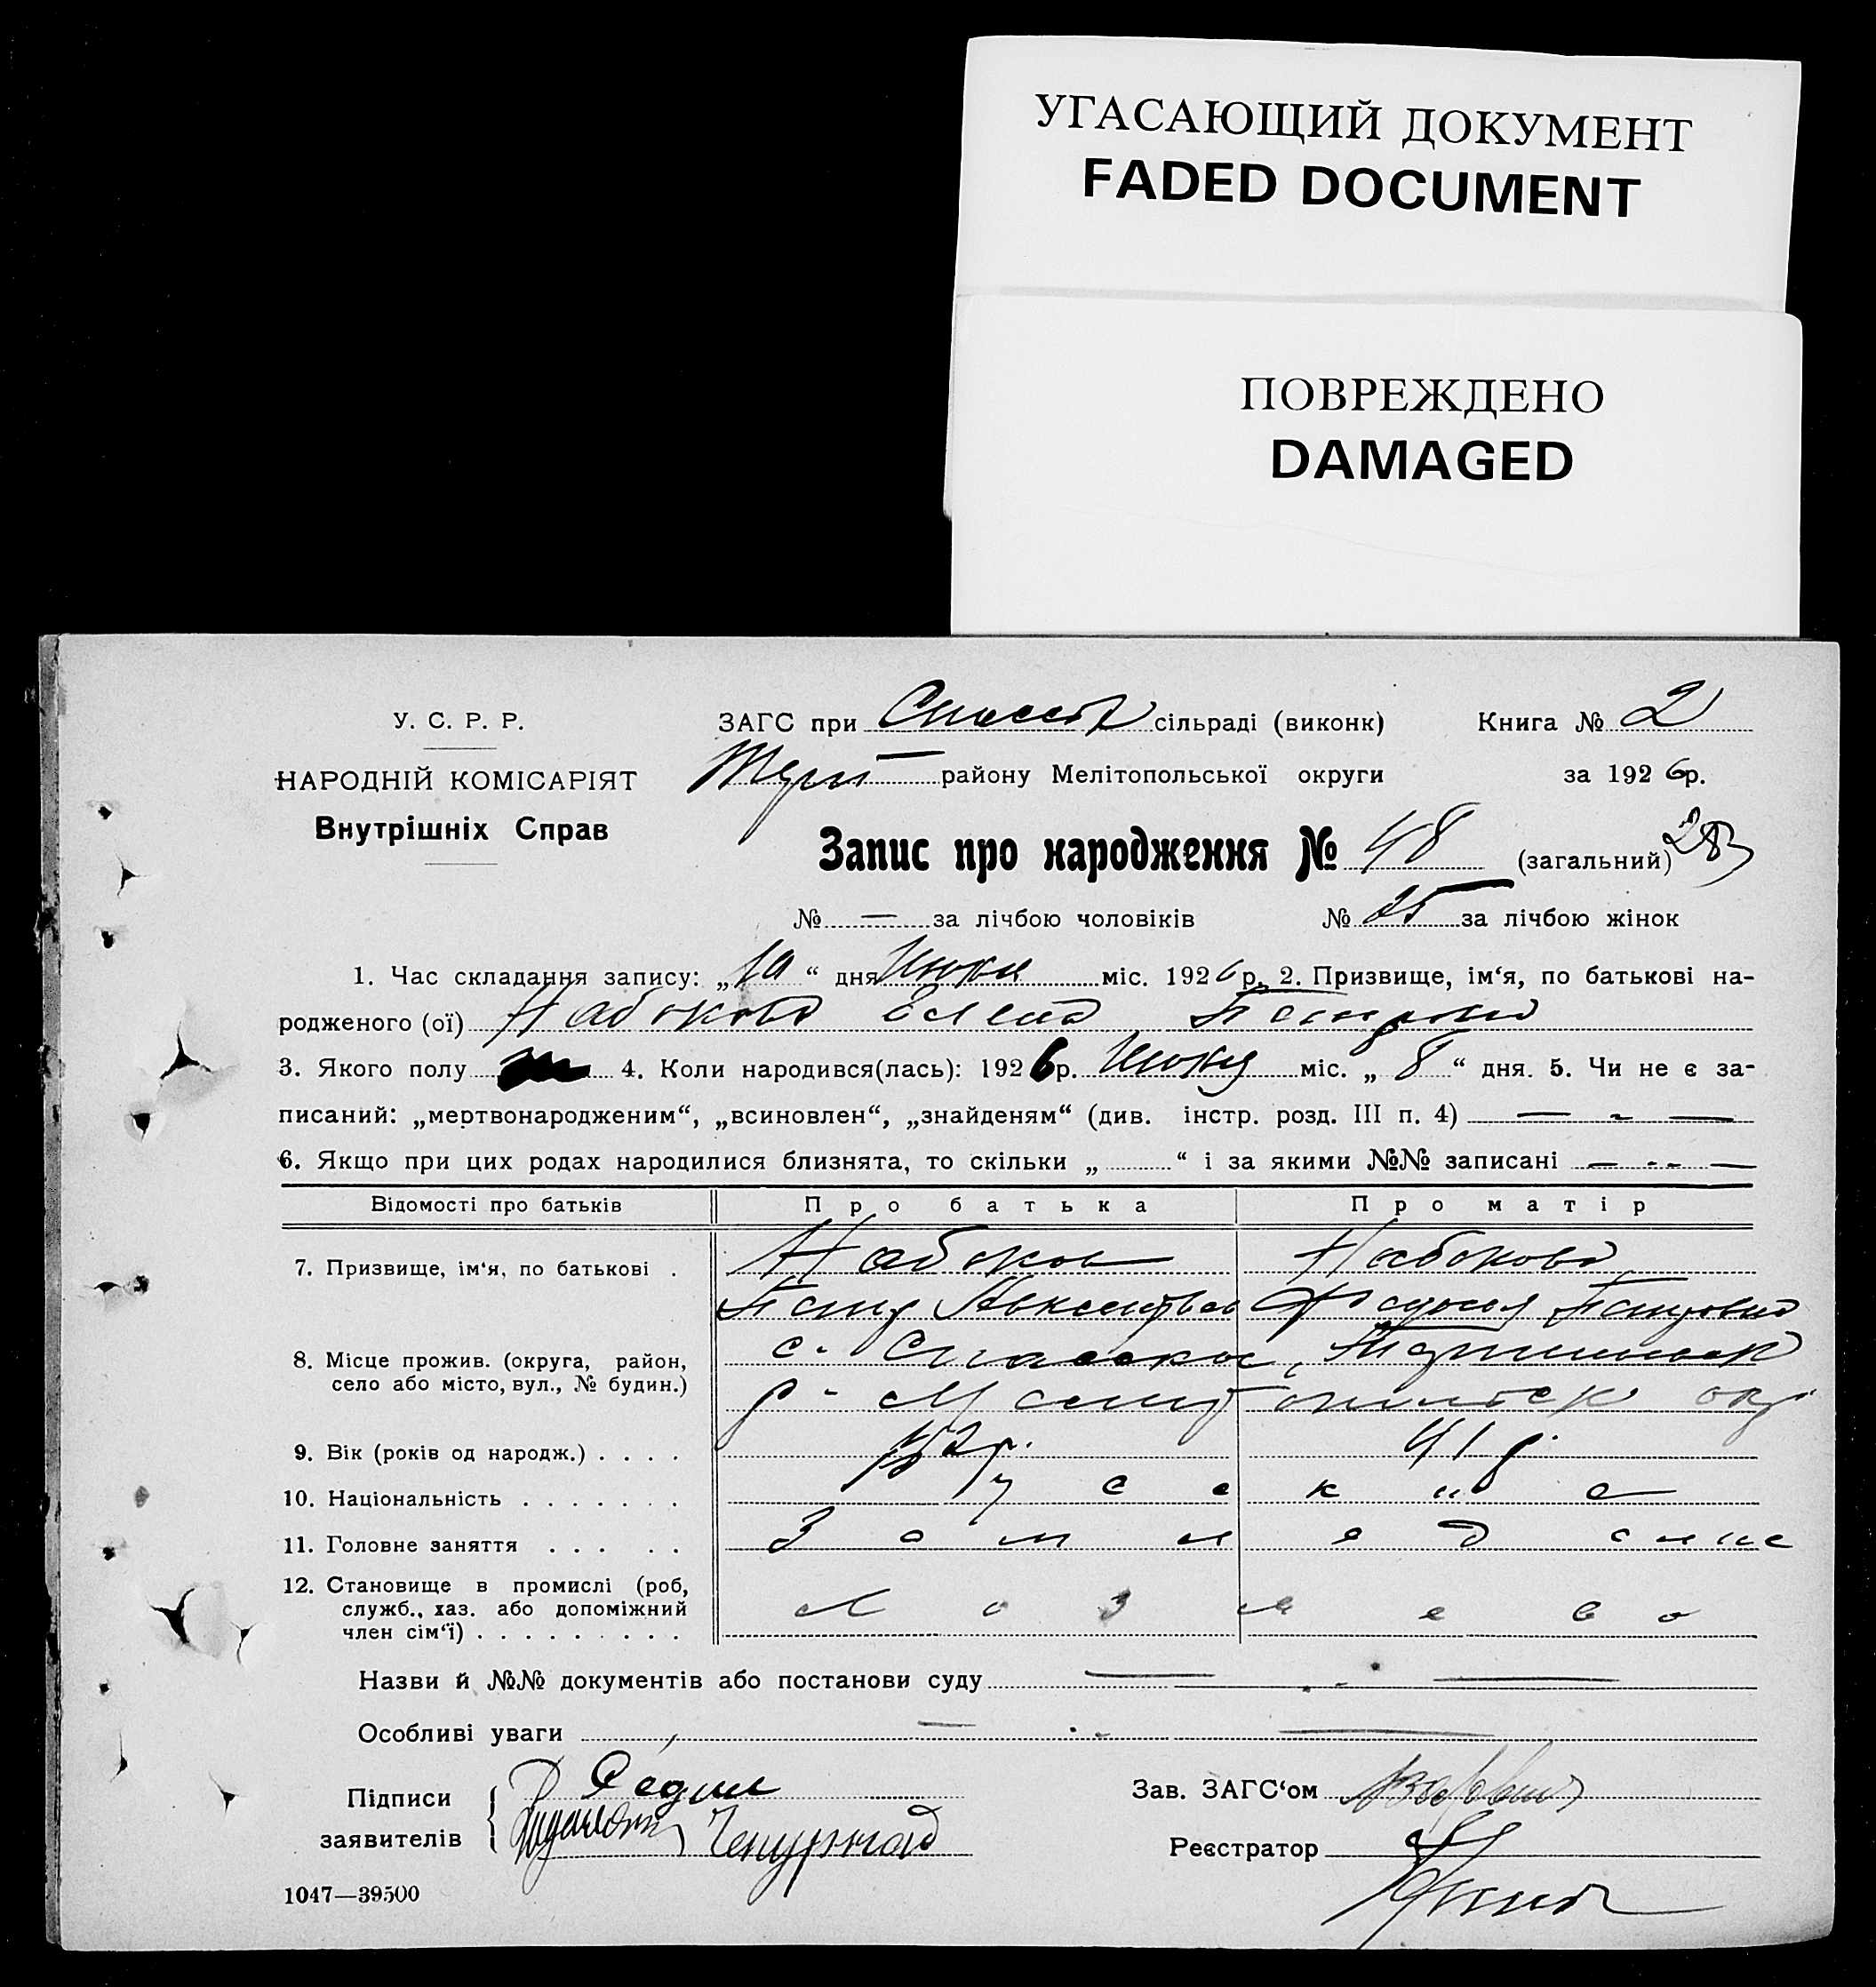 УГАСАЮЩИЙ ДОКУМЕНТ
FADED DOCUMENT
ПОВРЕЖДЕНО
DAMAGED
У. С. Р. Р.
НАРОДНІЙ КОМІСАРІЯТ
Внутрішніх Справ
ЗАГС при сільраді (виконк) Книга № 2
району Мелітопольської округи за 1926р.
Запис про народження № 48 (загальний) 283
№ — за лічбою чоловіків № 25 за лічбою жінок
1. Час складання запису: „10“ дня міс. 1926 р. 2. Призвище, ім‘я, по батькові на-
родженого (ої) Набокова Елена Петровна
3. Якого полу 4. Коли народився(лась): 1926р. міс. „8“ дня. 5. Чи не є за-
писаний: „мертвонародженим“, „всиновлен“, „знайденям“ (див. інстр. розд. III п. 4) — - —
6. Якщо при цих родах народилися близнята, то скільки „ “ і за якими №№ записані — - - —
Відомості про батьків Про батька Про матір
7. Призвище, ім‘я, по батькові . Набоков Набокова
Петр Авксентьев
8. Місце прожив. (округа, район, с. Спасское
село або місто, вул., № будин.) р- Мелитопольск окр
9. Вік (років од народж.) . . . . 52 р. 41 р.
10. Національність . . . . . . . Русские
11. Головне заняття . . . . . Земледелие
12. Становище в промислі (роб,
служб., хаз. або допоміжний
член сім‘ї) . . . . . . . . .
Назви й №№ документів або постанови суду
Особливі уваги
Підписи
заявителів
Зав. ЗАГС‘ом
Реєстратор
1047—39500